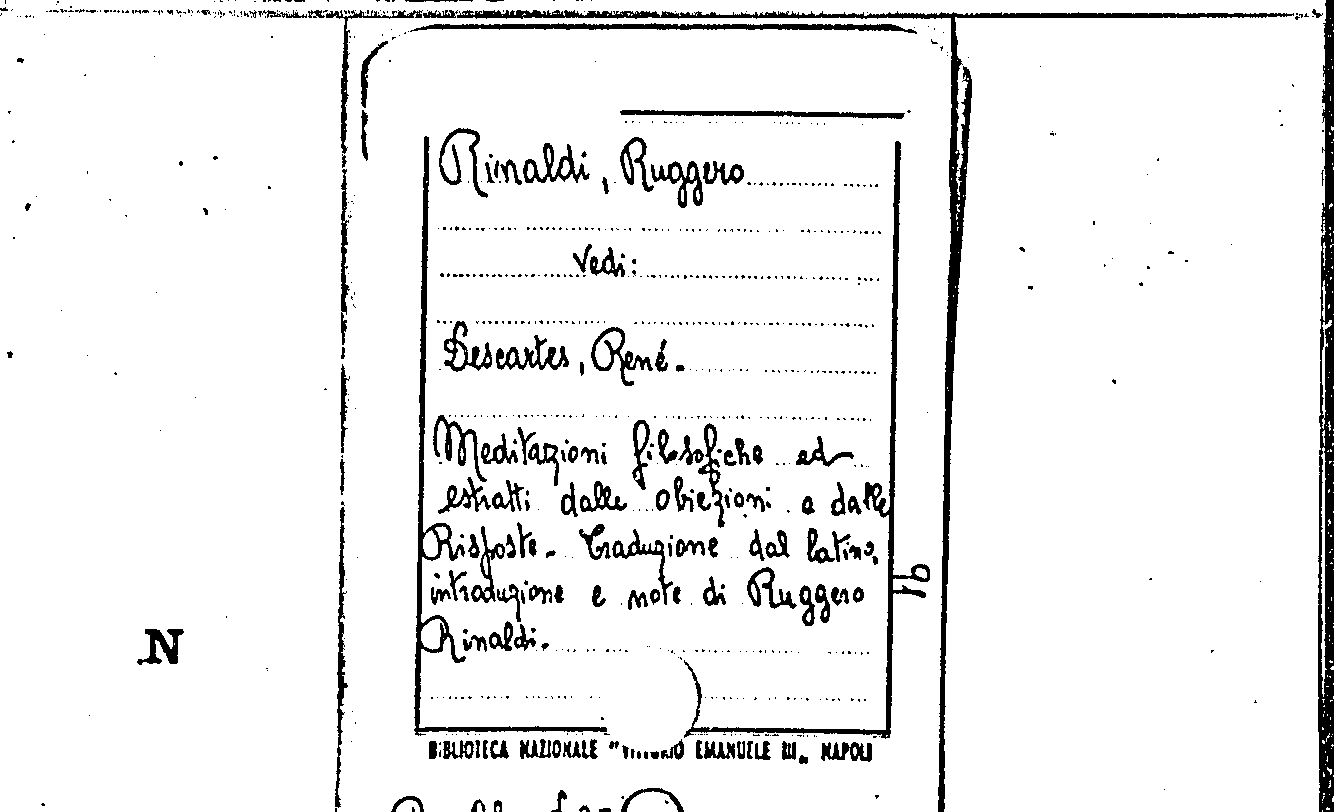 Rinaldi, Ruggero
Vedi:
Descartes, René.
Meditazioni filosofiche ed
estratti dalle obiezioni e dalle
Risposte. Traduzione dal latino,
introduzione e note di Ruggero
Rinaldi.
91
N
BIBLIOTECA NAZIONALE "VITTORIO EMANUELE III„ NAPOLI